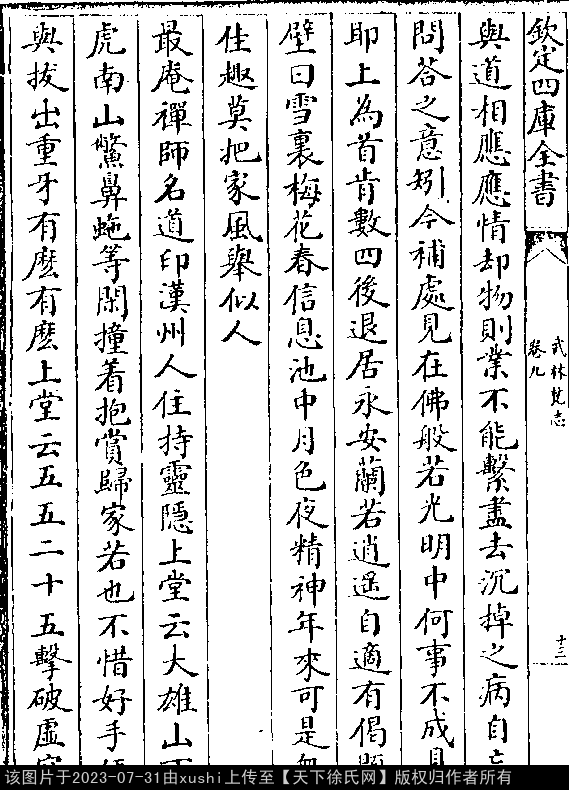 欽定四庫全書
武林梵志
卷九
十三
與道相應應情却物則業不能繫盡去沉掉之病自忘
問答之意矧今補處見在佛般若光明中何事不成見
耶上為首肯數四後退居永安蘭若逍遥自適有偈題
壁曰雪裏梅花春信息池中月色夜精神年來可是無
佳趣莫把家風舉似人
最庵禪師名道印漢州人住持靈隱上堂云大雄山下
虎南山鱉鼻蛇等閑撞着抱賞歸家若也不惜好手便
與拔出重牙有麽有麽上堂云五五二十五擊破虛空
该图片于2023-07-31由xushi上传至【天下徐氏网】版权归作者所有